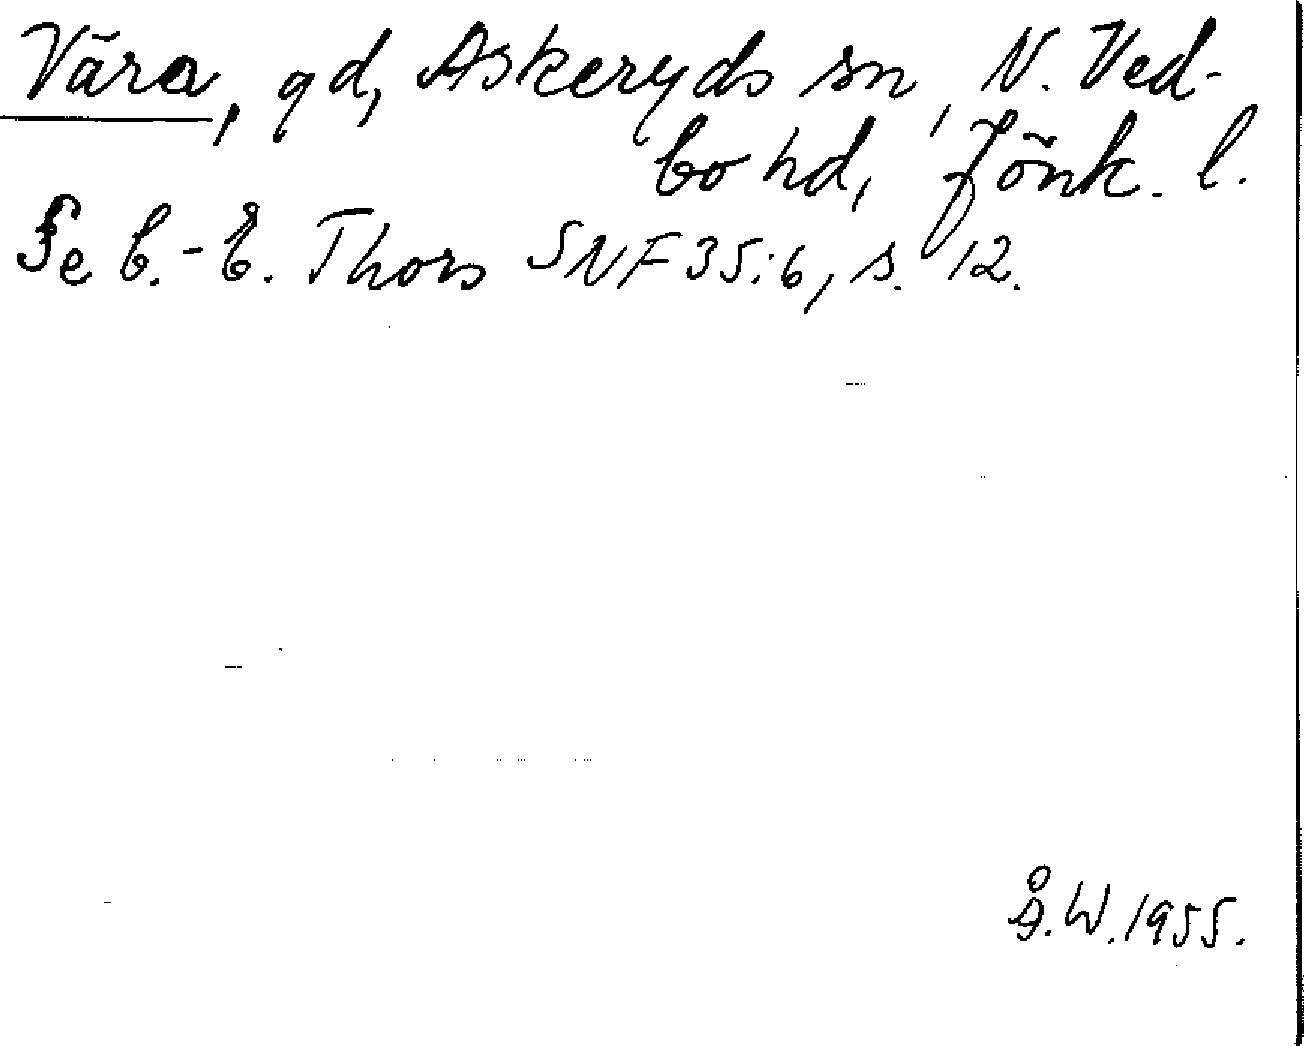 Vära, gd, Askeryds sn, N. Ved-
bo hd, Jönk. l.
Se C.-E. Thors SNF 35:6, s. 12.
Å.W. 1955.